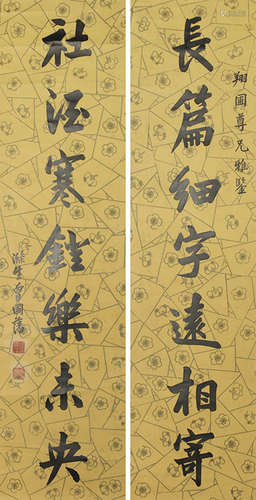 翔圃尊兄雅鑒
長篇細字遠相寄
社酒寒鐙樂未央
滌生曾國藩